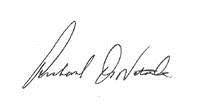 Richard Di Natale